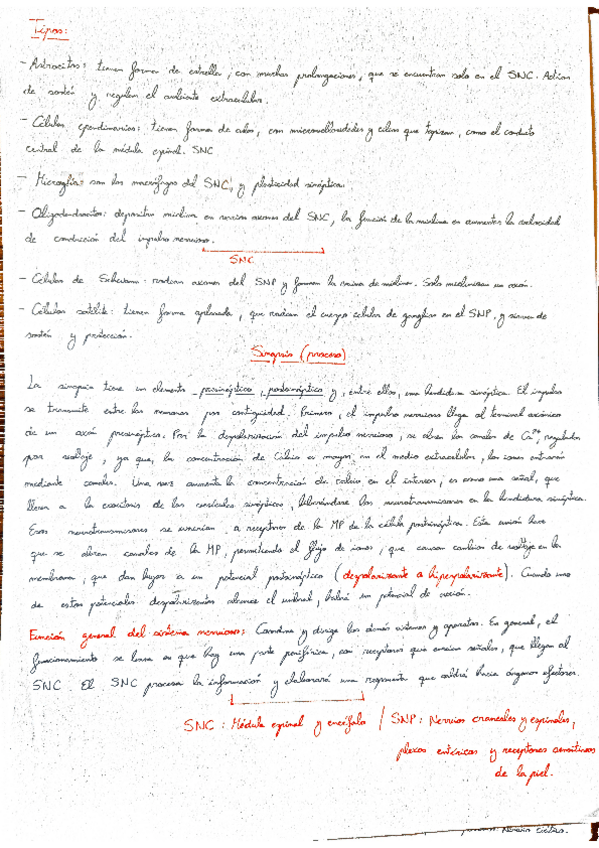 Tipos:
- Astrocitos: tienen forma de estrella, con muchas prolongaciones, que se encuentran solo en el SNC. Actúan
de sostén y regulan el ambiente extracelular.
- Células ependimarias: tienen forma de cubo, con microvellosidades y cilios que tapizan, como el conducto
central de la médula espinal. SNC
- Microglía: son los macrófagos del SNC, y plasticidad sináptica.
- Oligodendrocitos: depositan mielina en varios axones del SNC, la función de la mielina es aumentar la velocidad
de conducción del impulso nervioso.
SNC
- Células de Schwann: rodean axones del SNP y forman la vaina de mielina. Solo mielinizan un axón.
- Células satélite: tienen forma aplanada, que rodean el cuerpo celular de ganglios en el SNP, y sirven de
sostén y protección.
Sinapsis (proceso)
La sinapsis tiene un elemento presináptico, postsináptico y, entre ellos, una hendidura sináptica. El impulso
se transmite entre las neuronas por contigüidad. Primero, el impulso nervioso llega al terminal axónico
de un axón presináptico. Por la despolarización del impulso nervioso, se abren los canales de Ca²⁺, regulados
por voltaje, ya que, la concentración de Calcio es mayor en el medio extracelular, los iones entrarán
mediante canales. Una vez aumenta la concentración de calcio en el interior, es como una señal, que
llevan a la exocitosis de las vesículas sinápticas, liberándose los neurotransmisores en la hendidura sináptica.
Esos neurotransmisores se unirían a receptores de la MP de la célula postsináptica. Esta unión hace
que se abran canales de la MP, permitiendo el flujo de iones, que causan cambios de voltaje en la
membrana, que dan lugar a un potencial postsináptico (despolarizante o hiperpolarizante). Cuando uno
de estos potenciales despolarizantes alcance el umbral, habrá un potencial de acción.
Función general del sistema nervioso: Coordina y dirige los demás sistemas y aparatos. En general, el
funcionamiento se basa en que hay una parte periférica, con receptores que envían señales, que llegan al
SNC. El SNC procesa la información y elaborará una respuesta que saldrá hacia órganos efectores.
SNC: Médula espinal y encéfalo / SNP: Nervios craneales y espinales,
plexos entéricos y receptores sensitivos
de la piel.